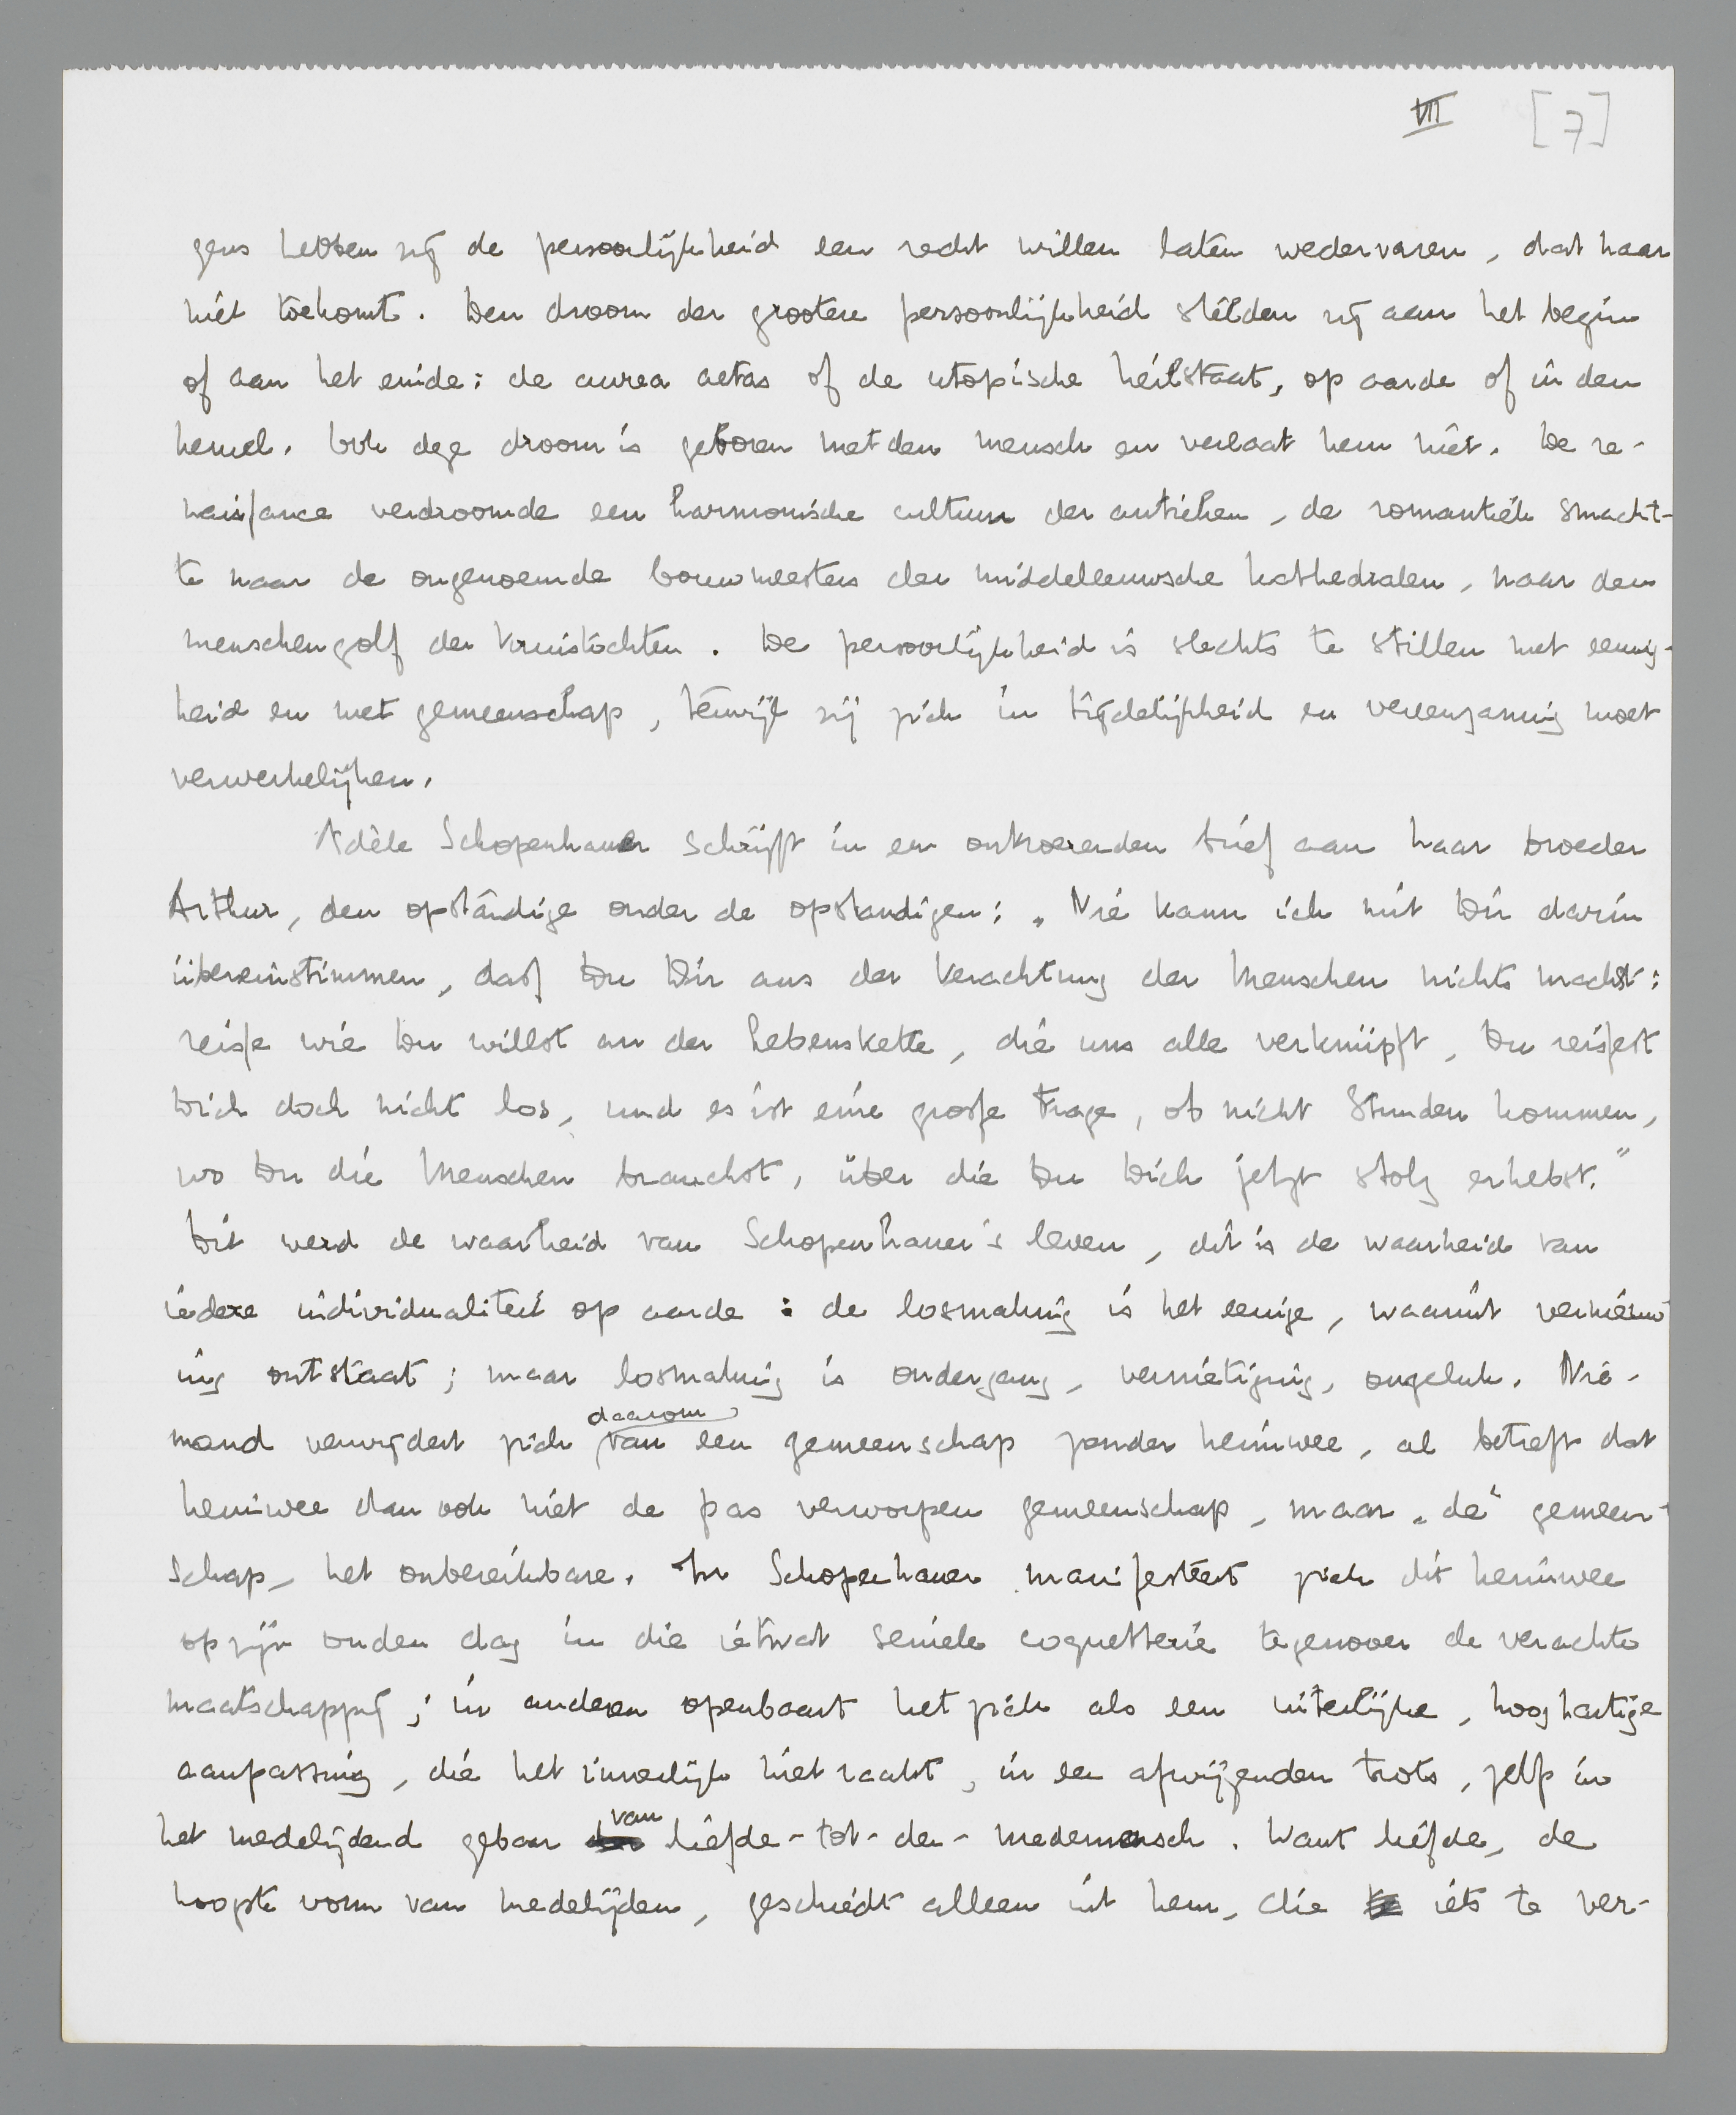 VII [7]
gens hebben zij de persoonlijkheid een recht willen laten wedervaren, dat haar
niet toekomt. Den droom der grootere persoonlijkheid stelden zij aan het begin
of aan het einde: de aurea aetas of de utopische heilstaat, op aarde of in den
hemel. Ook deze droom is geboren met den mensch en verlaat hem niet. De re-
naissance verdroomde een harmonische cultuur der antieken, de romantiek smacht-
te naar de ongenoemde bouwmeesters der middeleeuwsche kathedralen, naar den
menschengolf der kruistochten. De persoonlijkheid is slechts te stillen met eenig-
heid en met gemeenschap, terwijl zij zich in tijdelijkheid en vereenzaming moet
verwerkelijken.
Adèle Schopenhauer schrijft in een ontroerenden brief aan haar broeder
Arthur, den opstandige onder de opstandigen: „Nie kann ich mit Dir darin
übereinstimmen, dass Du Dir aus der Verachtung der Menschen nichts machst:
reisse wie Du willst an der Lebenskette, die uns alle verknüpft, Du reissest
Dich doch nicht los, und es ist eine grosse Frage, ob nicht Stunden kommen,
wo Du die Menschen brauchst, über die Du Dich jetzt stolz erhebst."
Dit werd de waarheid van Schopenhauer's leven, dit is de waarheid van
iedere individualiteit op aarde: de losmaking is het eenige, waaruit vernieuw-
ing ontstaat; maar losmaking is ondergang, vernietiging, ongeluk. Nie-
mand verwijdert zich daarom van een gemeenschap zonder heimwee, al betreft dat
heimwee dan ook niet de pas verworpen gemeenschap, maar „de" gemeen-
schap, het onbereikbare. In Schopenhauer manifesteert zich dit heimwee
op zijn ouden dag in die ietwat seniele coquetterie tegenover de verachte
maatschappij; in anderen openbaart het zich als een uiterlijke, hooghartige
aanpassing, die het innerlijk niet raakt, in een afwijzenden trots, zelfs in
het medelijdend gebaar van liefde-tot-den-medemensch. Want liefde, de
hoogste vorm van medelijden, geschiedt alleen uit hem, die iets te ver-